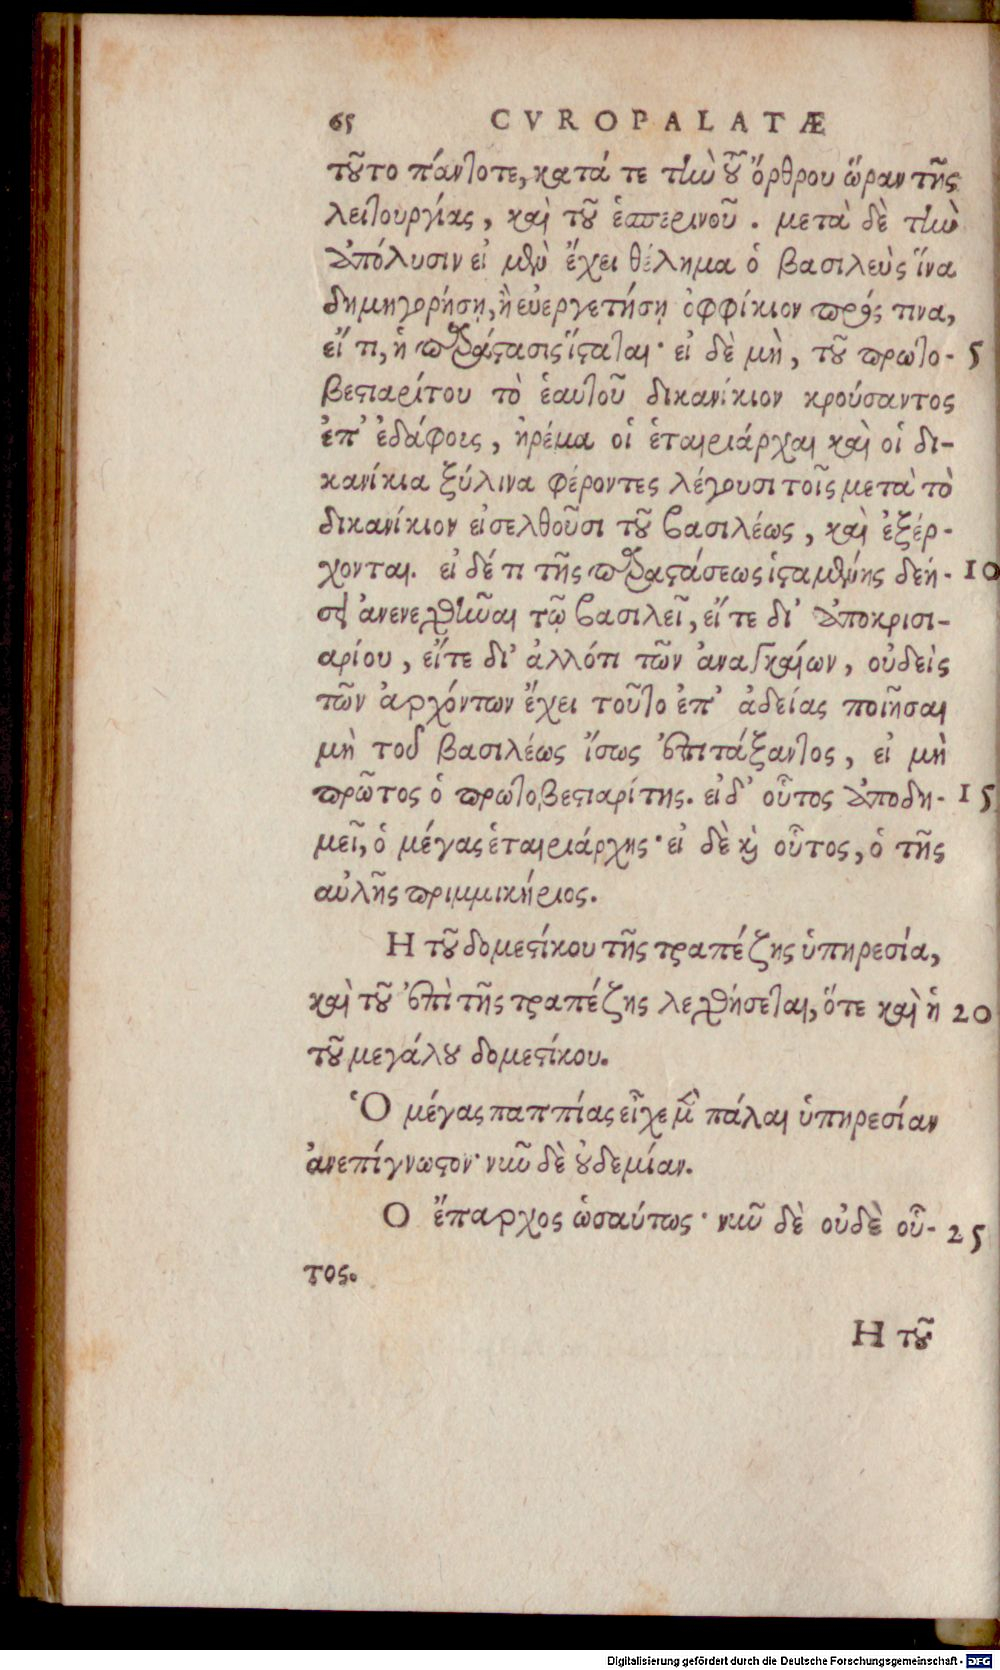 65 CVROPALATÆ
τοῦτο πάντοτε, κατά τε τὴν τοῦ ὄρθρου ὥραν τῆς
λειτουργίας, καὶ τοῦ ἑσπερινοῦ. μετὰ δὲ τὴν
ἀπόλυσιν εἰ μὲν ἔχει θέλημα ὁ βασιλεὺς ἵνα
δημηγορήσῃ, ἢ εὐεργετήσῃ ὀφφίκιον πρός τινα,
εἴ τι, ἡ παράστασις ἵσταται· εἰ δὲ μὴ, τοῦ πρωτο- 5
βεστιαρίτου τὸ ἑαυτοῦ δικανίκιον κρούσαντος
ἐπ' ἐδάφους, ἠρέμα οἱ ἑταιριάρχαι καὶ οἱ δι-
κανίκια ξύλινα φέροντες λέγουσι τοῖς μετὰ τὸ
δικανίκιον εἰσελθοῦσι τοῦ βασιλέως, καὶ ἐξέρ-
χονται. εἰ δέ τι τῆς παραστάσεως ἱσταμένης δεή- 10
σει ἀνενεχθῆναι τῷ βασιλεῖ, εἴτε δι' ἀποκρισι-
αρίου, εἴτε δι' ἀλλότι τῶν ἀναγκαίων, οὐδεὶς
τῶν ἀρχόντων ἔχει τοῦτο ἐπ' ἀδείας ποιῆσαι
μὴ τοῦ βασιλέως ἴσως ἐπιτάξαντος, εἰ μὴ
πρῶτος ὁ πρωτοβεστιαρίτης. εἰ δ' οὗτος ἀποδη- 15
μεῖ, ὁ μέγας ἑταιριάρχης· εἰ δὲ καὶ οὗτος, ὁ τῆς
αὐλῆς πριμμικήριος.
Η τοῦ δομεστίκου τῆς τραπέζης ὑπηρεσία,
καὶ τοῦ ἐπὶ τῆς τραπέζης λεχθήσεται, ὅτε καὶ ἡ 20
τοῦ μεγάλου δομεστίκου.
Ὁ μέγας παππίας εἶχε μὲν πάλαι ὑπηρεσίαν
ἀνεπίγνωστον· νῦν δὲ οὐδεμίαν.
Ο ἔπαρχος ὡσαύτως· νῦν δὲ οὐδὲ οὗ- 25
τος.
Η τοῦ
Digitalisierung gefördert durch die Deutsche Forschungsgemeinschaft - DFG